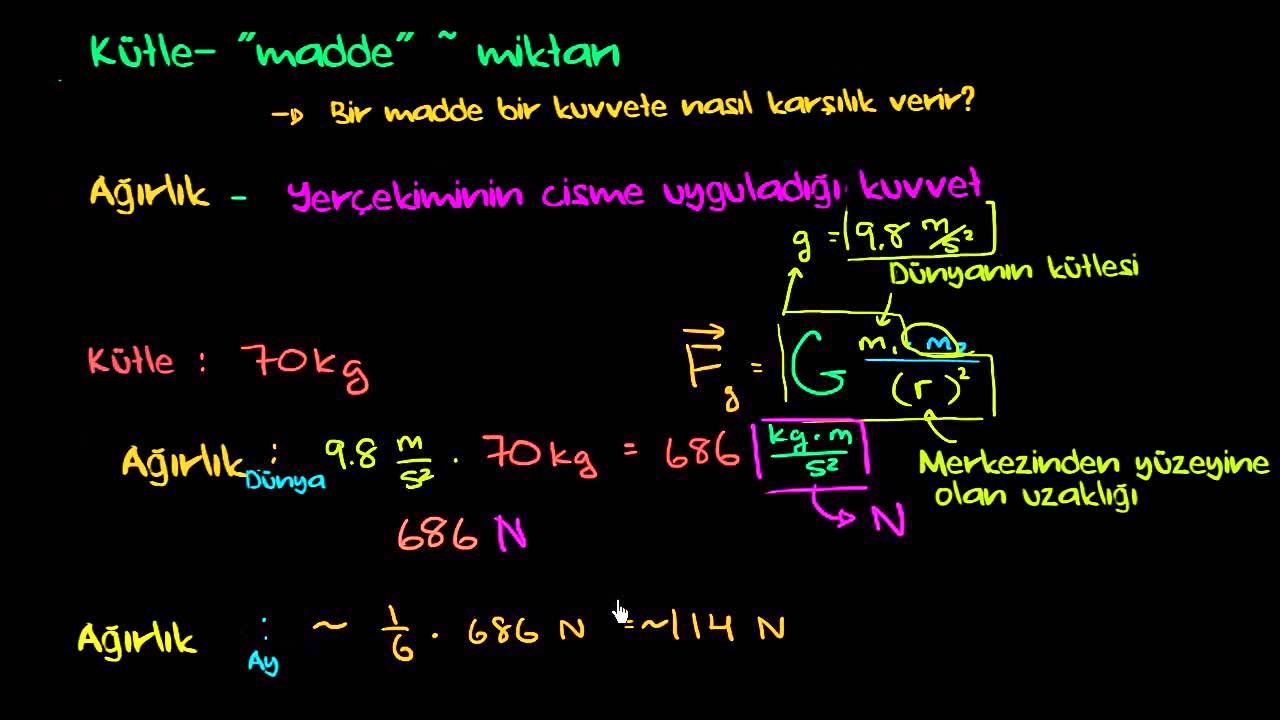 Kütle- "madde" ~ miktarı
→ Bir madde bir kuvvete nasıl karşılık verir?
Ağırlık - Yerçekiminin cisme uyguladığı kuvvet
g = 9.8 m/s²
Dünyanın kütlesi
Kütle : 70kg
F_g = G m₁ · m₂ / (r)²
Ağırlık Dünya : 9.8 m/s² · 70kg = 686 kg·m/s²
→ N
Merkezinden yüzeyine
olan uzaklığı
686 N
Ağırlık Ay : ~ 1/6 · 686 N = ~114 N